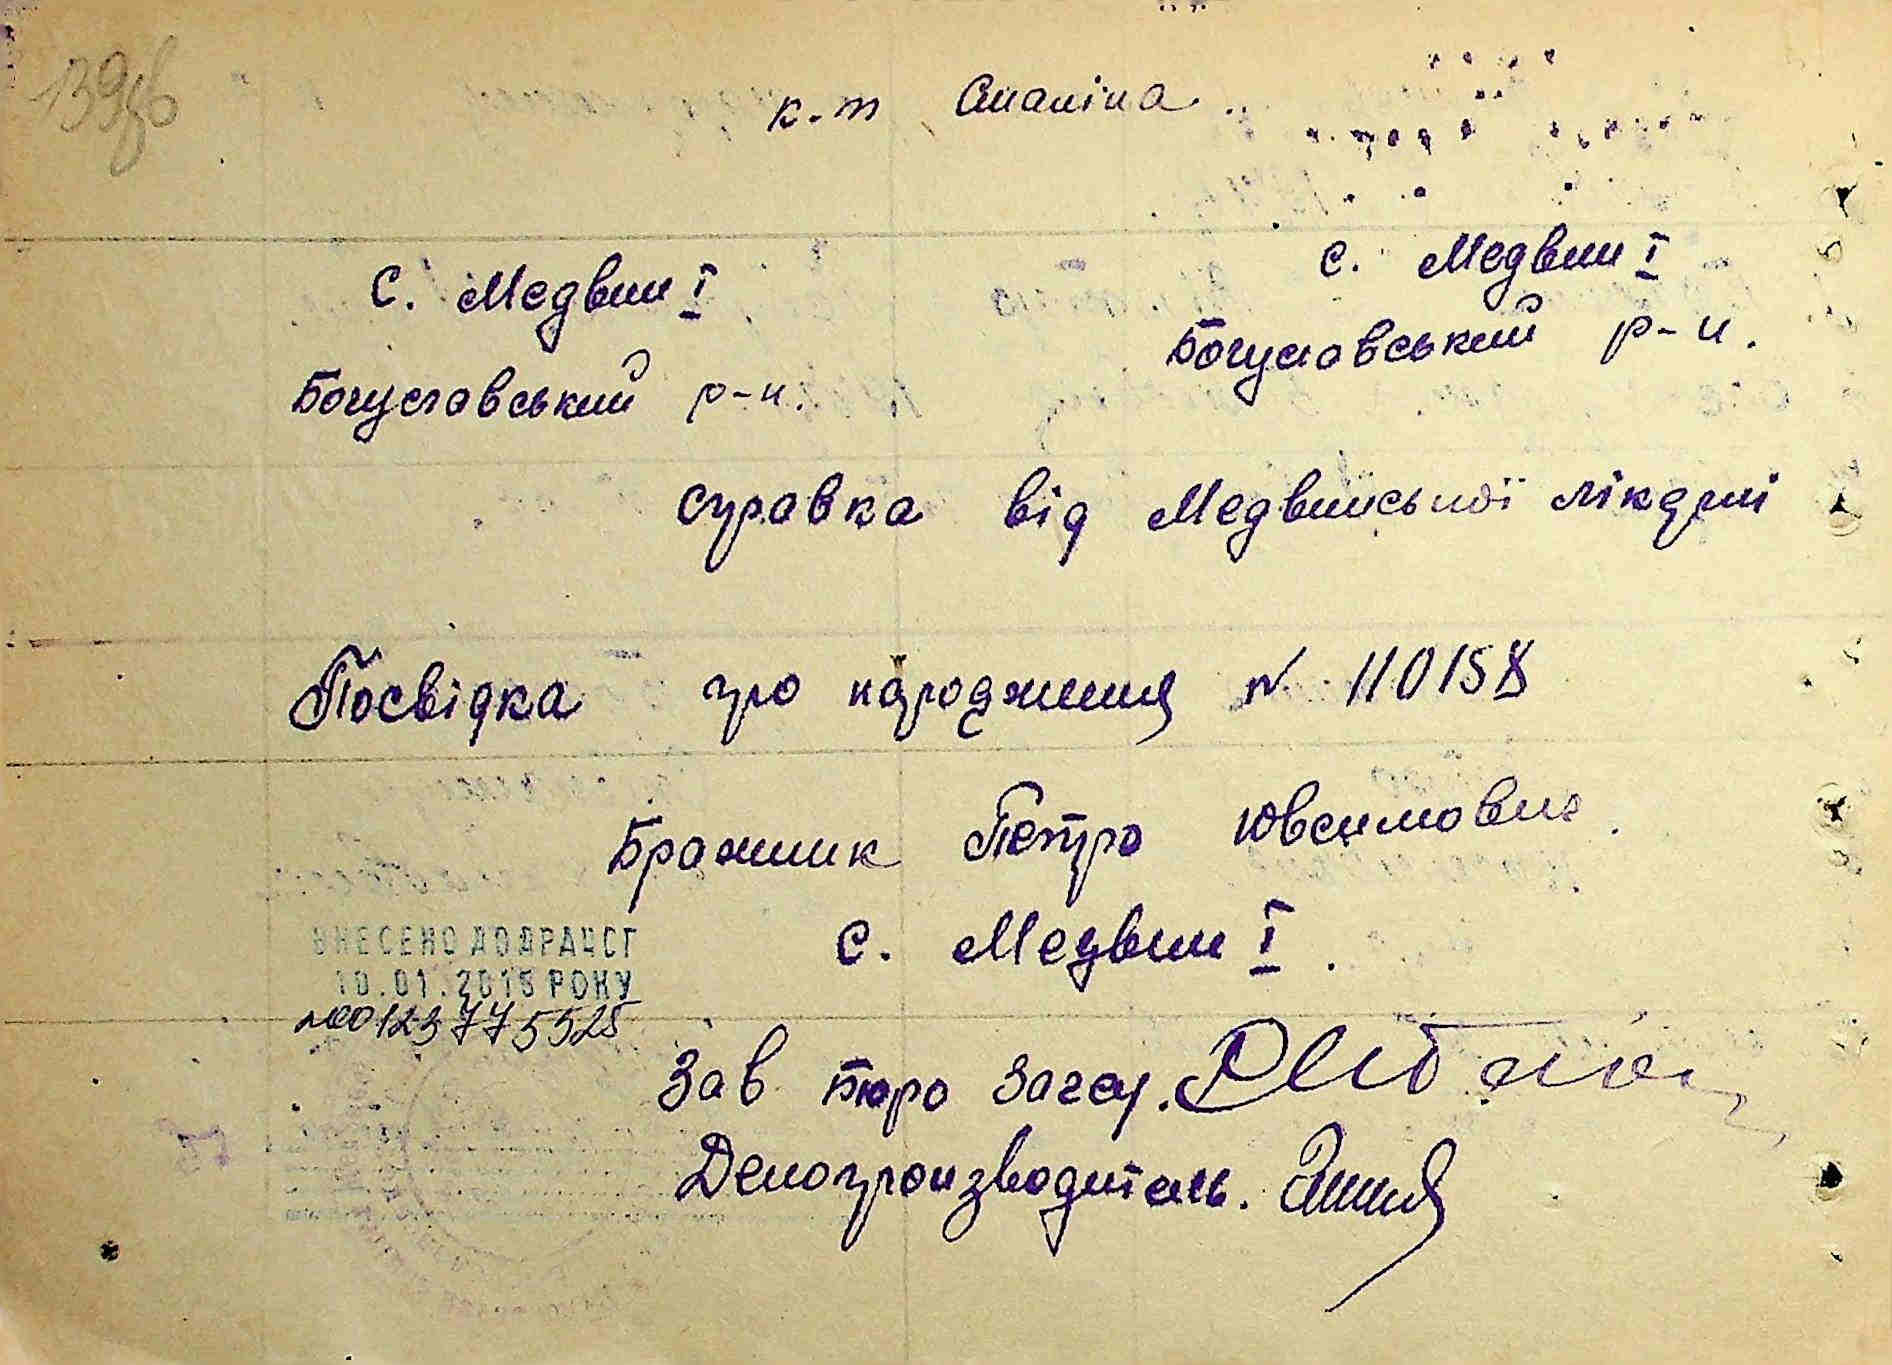 139зв
к-т Сталіна
с. Медвин І
Богуславський р-н.
с. Медвин І
Богуславський р-н.
справка від Медвинської лікарні
Посвідка про народження № 110158
Бражник Петро Ювсимович
с. Медвин І.
ВНЕСЕНО ДО ДРАЦСГ
10.01.2015 РОКУ
№00123775525
Зав бюро Загсу.
Делопроизводитель.